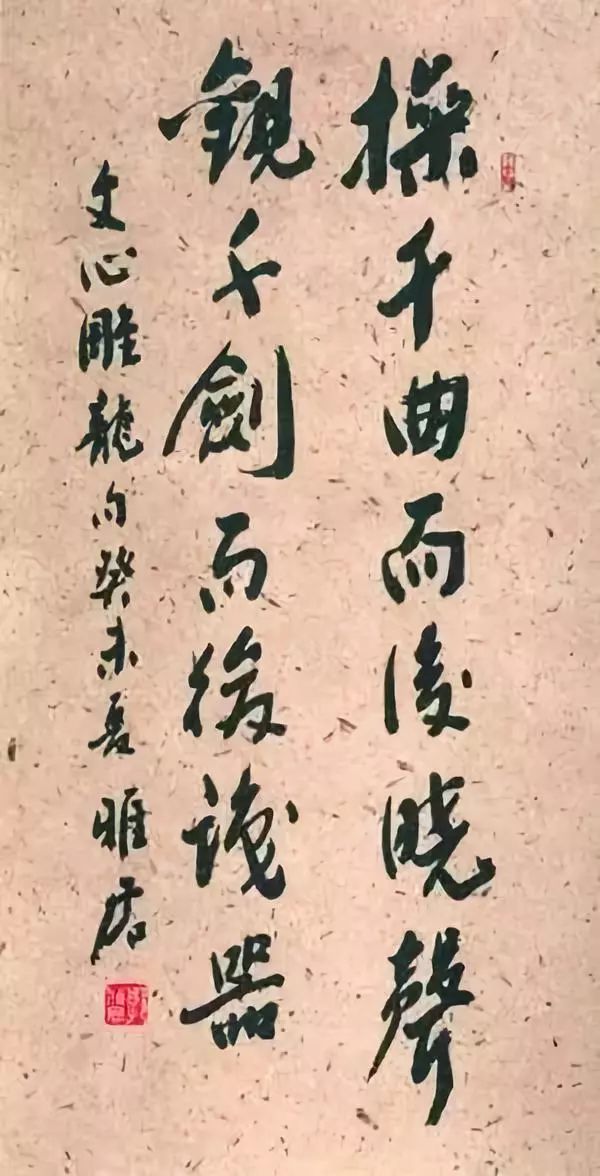 操千曲而後曉聲
觀千劍而後識器
文心雕龍句癸未夏雅君